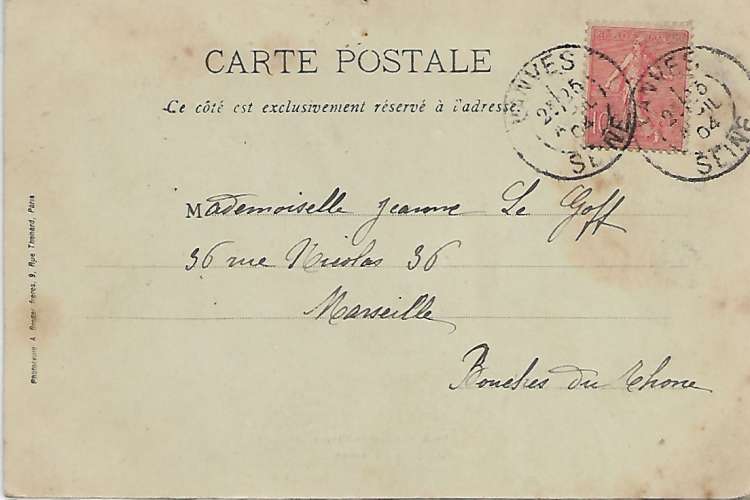 CARTE POSTALE
Le côté est exclusivement réservé à l'adresse.
VANVES
SEINE
04
VANVES
SEINE
04
Mademoiselle Jeanne Le Goff
36 rue Nicolas 36
Marseille
Bouches du Rhone
Phototypie A. Berger frères, 9, Rue Thénard, Paris